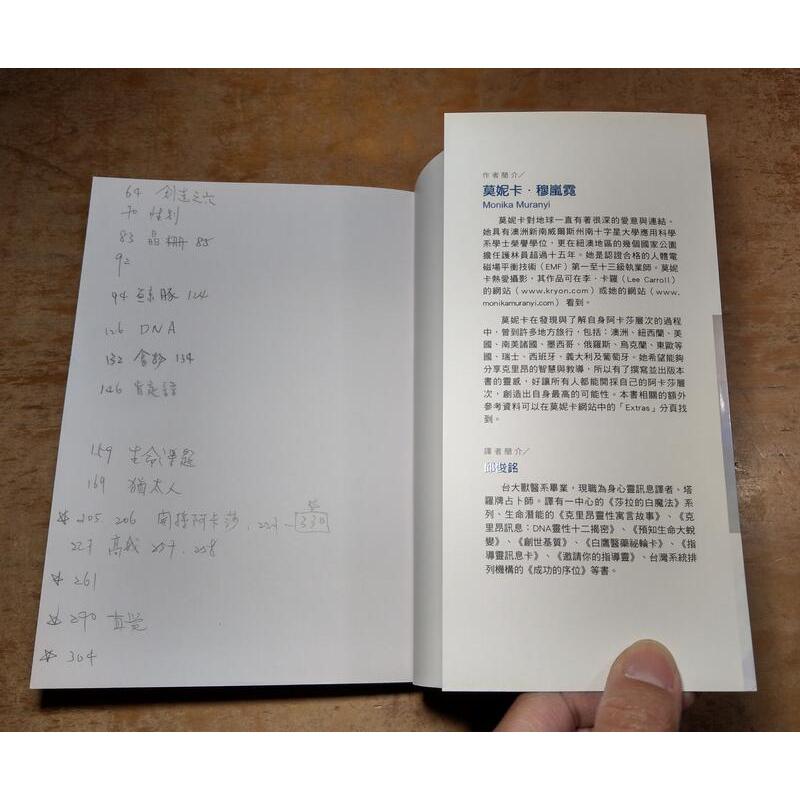 64 創造之穴
70 性別
83 晶 85
92
94 豚 124
126 DNA
132 拿掉 134
146 肯定語
159 生命課題
169 猶太人
205. 206 開採阿卡莎. 227 ~ 330
227 高我 257. 258
261
290 直覺
304
作者簡介／
莫妮卡．穆嵐霓
Monika Muranyi
莫妮卡對地球一直有著很深的愛意與連結。
她具有澳洲新南威爾斯州南十字星大學應用科學
系學士榮譽學位，更在紐澳地區的幾個國家公園
擔任護林員超過十五年。她是認證合格的人體電
磁場平衡技術（EMF）第一至十三級執業師。莫妮
卡熱愛攝影，其作品可在李．卡羅（Lee Carroll）
的網站（www.kryon.com）或她的網站（www.
monikamuranyi.com）看到。
莫妮卡在發現與了解自身阿卡莎層次的過程
中，曾到許多地方旅行，包括：澳洲、紐西蘭、美
國、南美諸國、墨西哥、俄羅斯、烏克蘭、東歐等
國、瑞士、西班牙、義大利及葡萄牙。她希望能夠
分享克里昂的智慧與教導，所以有了撰寫並出版本
書的靈感，好讓所有人都能開採自己的阿卡莎層
次，創造出自身最高的可能性。本書相關的額外
參考資料可以在莫妮卡網站中的「Extras」分頁找
到。
譯者簡介／
邱俊銘
台大獸醫系畢業，現職為身心靈訊息譯者、塔
羅牌占卜師。譯有一中心的《莎拉的白魔法》系
列、生命潛能的《克里昂靈性寓言故事》、《克
里昂訊息：DNA靈性十二揭密》、《預知生命大蛻
變》、《創世基質》、《白鷹醫藥祕輪卡》、《指
導靈訊息卡》、《邀請你的指導靈》、台灣系統排
列機構的《成功的序位》等書。